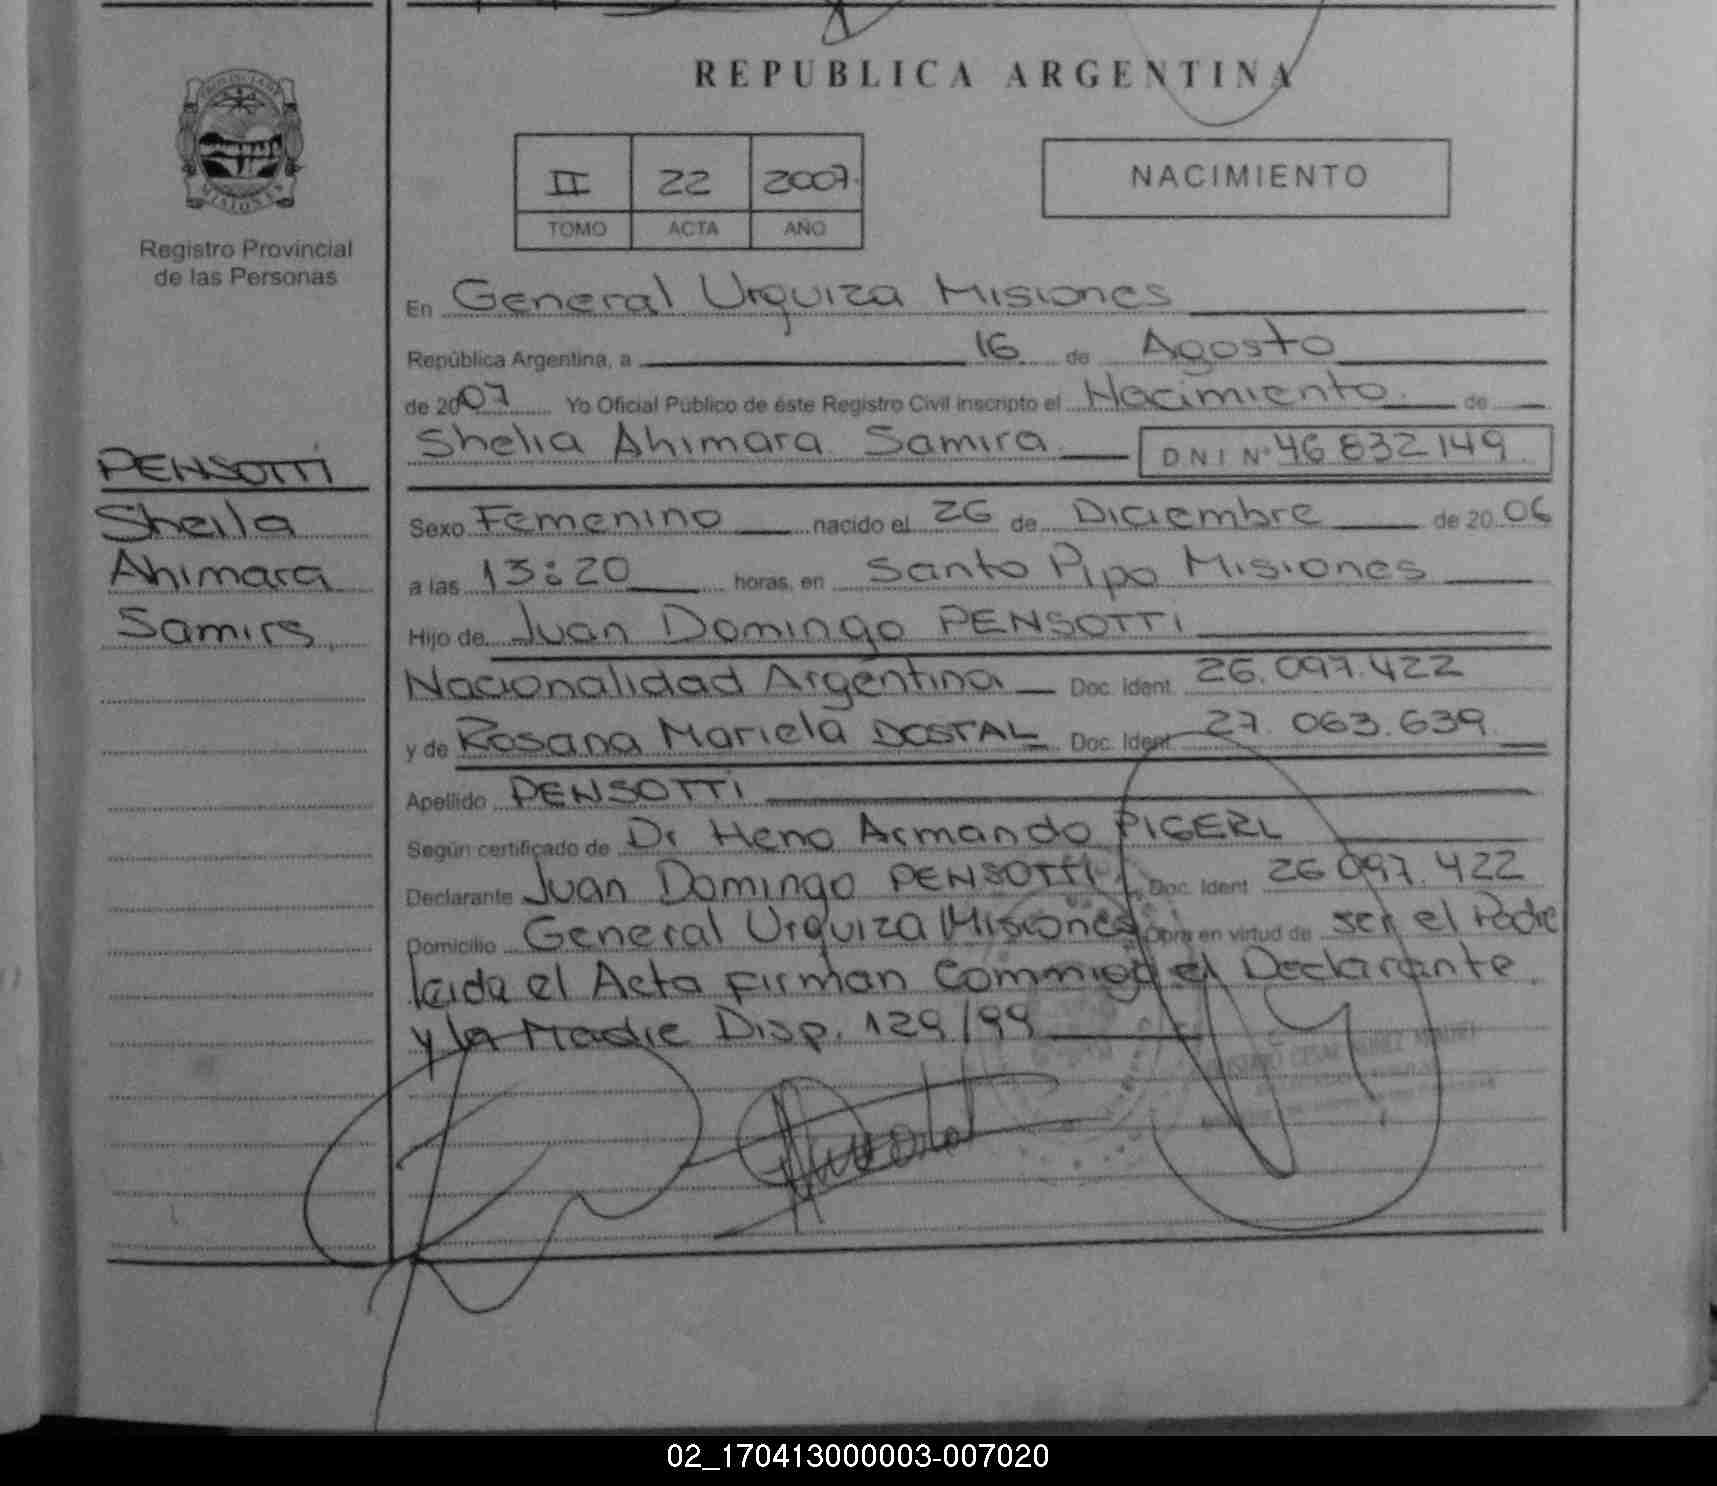 REPUBLICA ARGENTINA
PROVINCIA DE MISIONES
Registro Provincial
de las Personas
II 22 2007.
TOMO ACTA AÑO
NACIMIENTO
En General Urquiza Misiones
República Argentina, a 16 de Agosto
de 2007 Yo Oficial Público de éste Registro Civil inscripto el Nacimiento. de
Shelia Ahimara Samira DNI Nº 46 832 149
PENSOTTI
Sheila
Ahimara
Samirs
Sexo Femenino nacido el 26 de Diciembre de 2006
a las 13:20 horas, en Santo Pipo Misiones
Hijo de Juan Domingo PENSOTTI
Nacionalidad Argentina Doc. Ident. 26.097.422
y de Rosana Mariela DOSTAL Doc. Ident. 27.063.639
Apellido PENSOTTI
Según certificado de Dr Heno Armando PIGERL
Declarante Juan Domingo PENSOTTI Doc. Ident. 26 097.422
Domicilio General Urquiza Misiones Obra en virtud de ser el Padre
leida el Acta firman Conmigo el Declarante
y la Madre Disp. 129/99
02_170413000003-007020